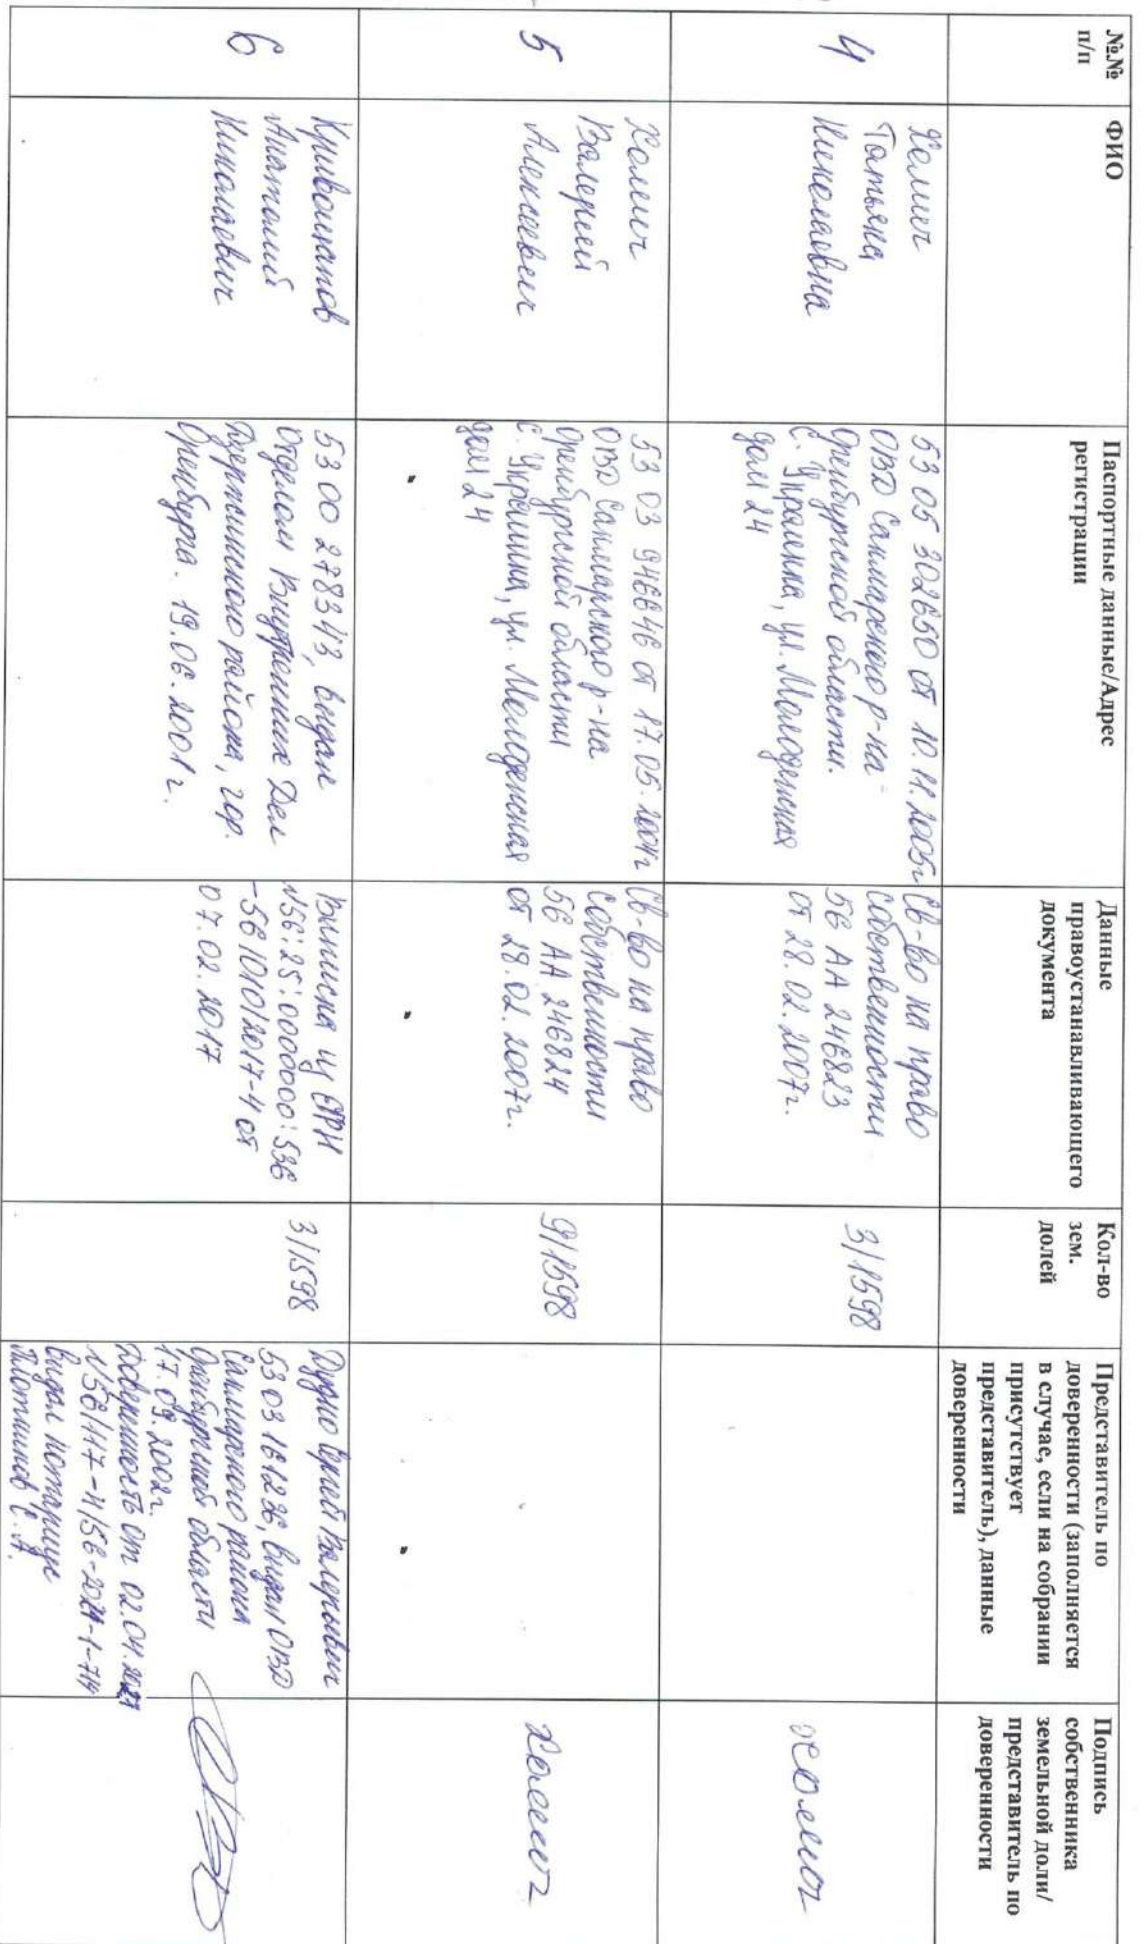 №№
п/п
ФИО
Паспортные данные/Адрес
регистрации
Данные
правоустанавливающего
документа
Кол-во
зем.
долей
Представитель по
доверенности (заполняется
в случае, если на собрании
присутствует
представитель), данные
доверенности
Подпись
собственника
земельной доли/
представитель по
доверенности
4
Холич
Татьяна
Николаевна
53 05 302650 от 10.11.2005г
ОВД Сакмарского р-на
Оренбургской области.
с. Украинка, ул. Молодежная
дом 24
Св-во на право
собственности
56 АА 246823
от 28.02.2007г.
3/1598
5
Холич
Валерий
Алексеевич
53 03 946646 от 17.05.2004г
ОВД Сакмарского р-на
Оренбургской области
с. Украинка, ул. Молодежная
дом 24
Св-во на право
собственности
56 АА 246824
от 28.02.2007г.
9/1598
6
Кривошапов
Анатолий
Николаевич
53 00 278343, выдан
Отделом Внутренних Дел
Дзержинского района, гор.
Оренбурга. 19.06.2001г.
Выписка из ЕГРН
№56:25:0000000:536
-56/010/2017-4 от
07.02.2017
3/1598
Валерьевич
53 03 161236, выдан ОВД
Сакмарского района
Оренбургской области
17.09.2002г.
Доверенность от 02.04.2021
№56/117-н/56-2021-1-714
выдал нотариус
Плотников С.А.